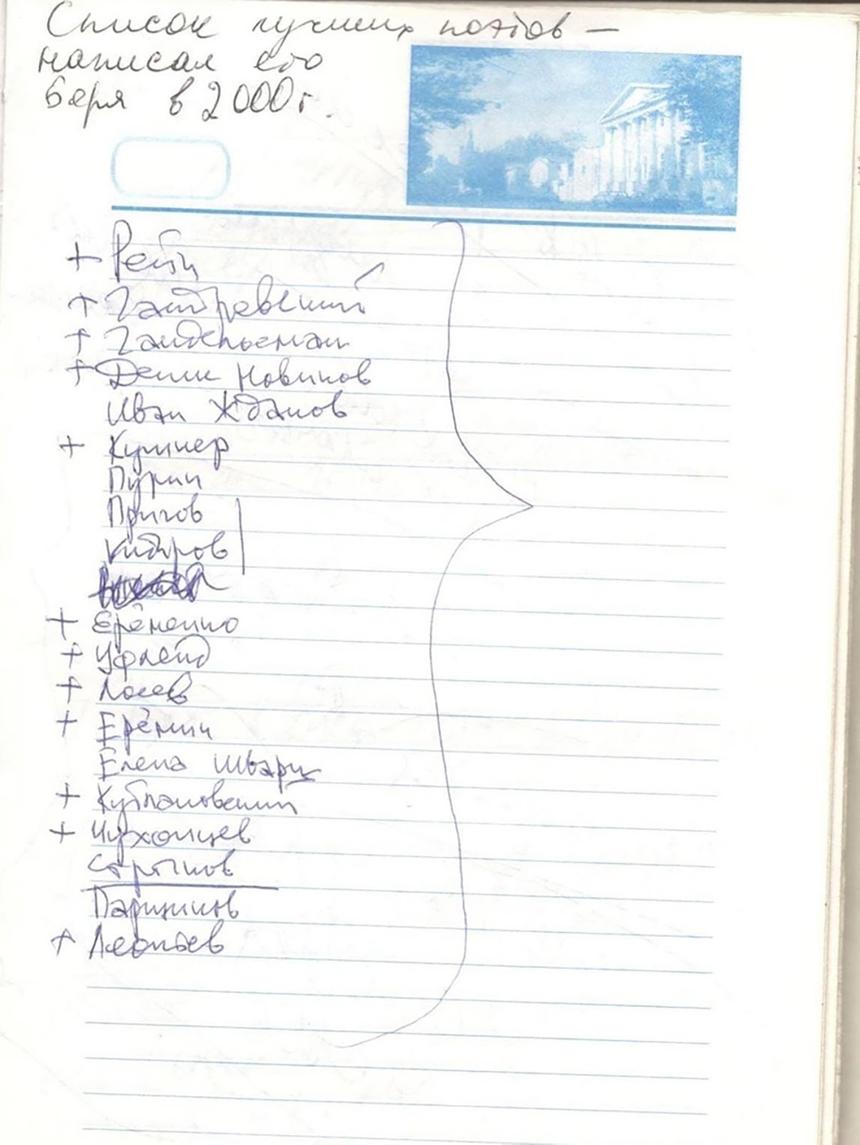 Список лучших поэтов —
написал его
Боря в 2000 г.
+ Рейн
+ Гандлевский
+ Гандельсман
+ Денис Новиков
Иван Жданов
+ Кушнер
Пурин
Пригов
Кибиров
+ Ерёменко
+ Уфлянд
+ Лосев
+ Ерёмин
Елена Шварц
+ Кублановский
+ Чухонцев
Стратановский
Парщиков
+ Леонтьев